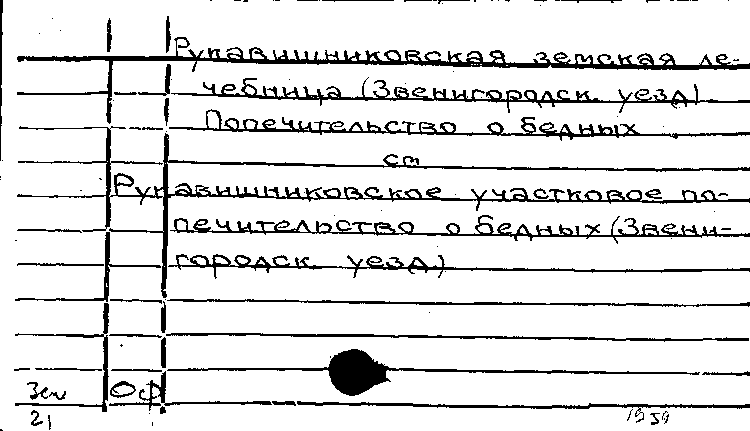 Рукавишниковская земская ле-
чебница (Звенигородск. уезд)
Попечительство о бедных
см
Рукавишниковское участковое по-
печительство о бедных (Звени-
городск. уезд.)
Зем Оф
21 1959